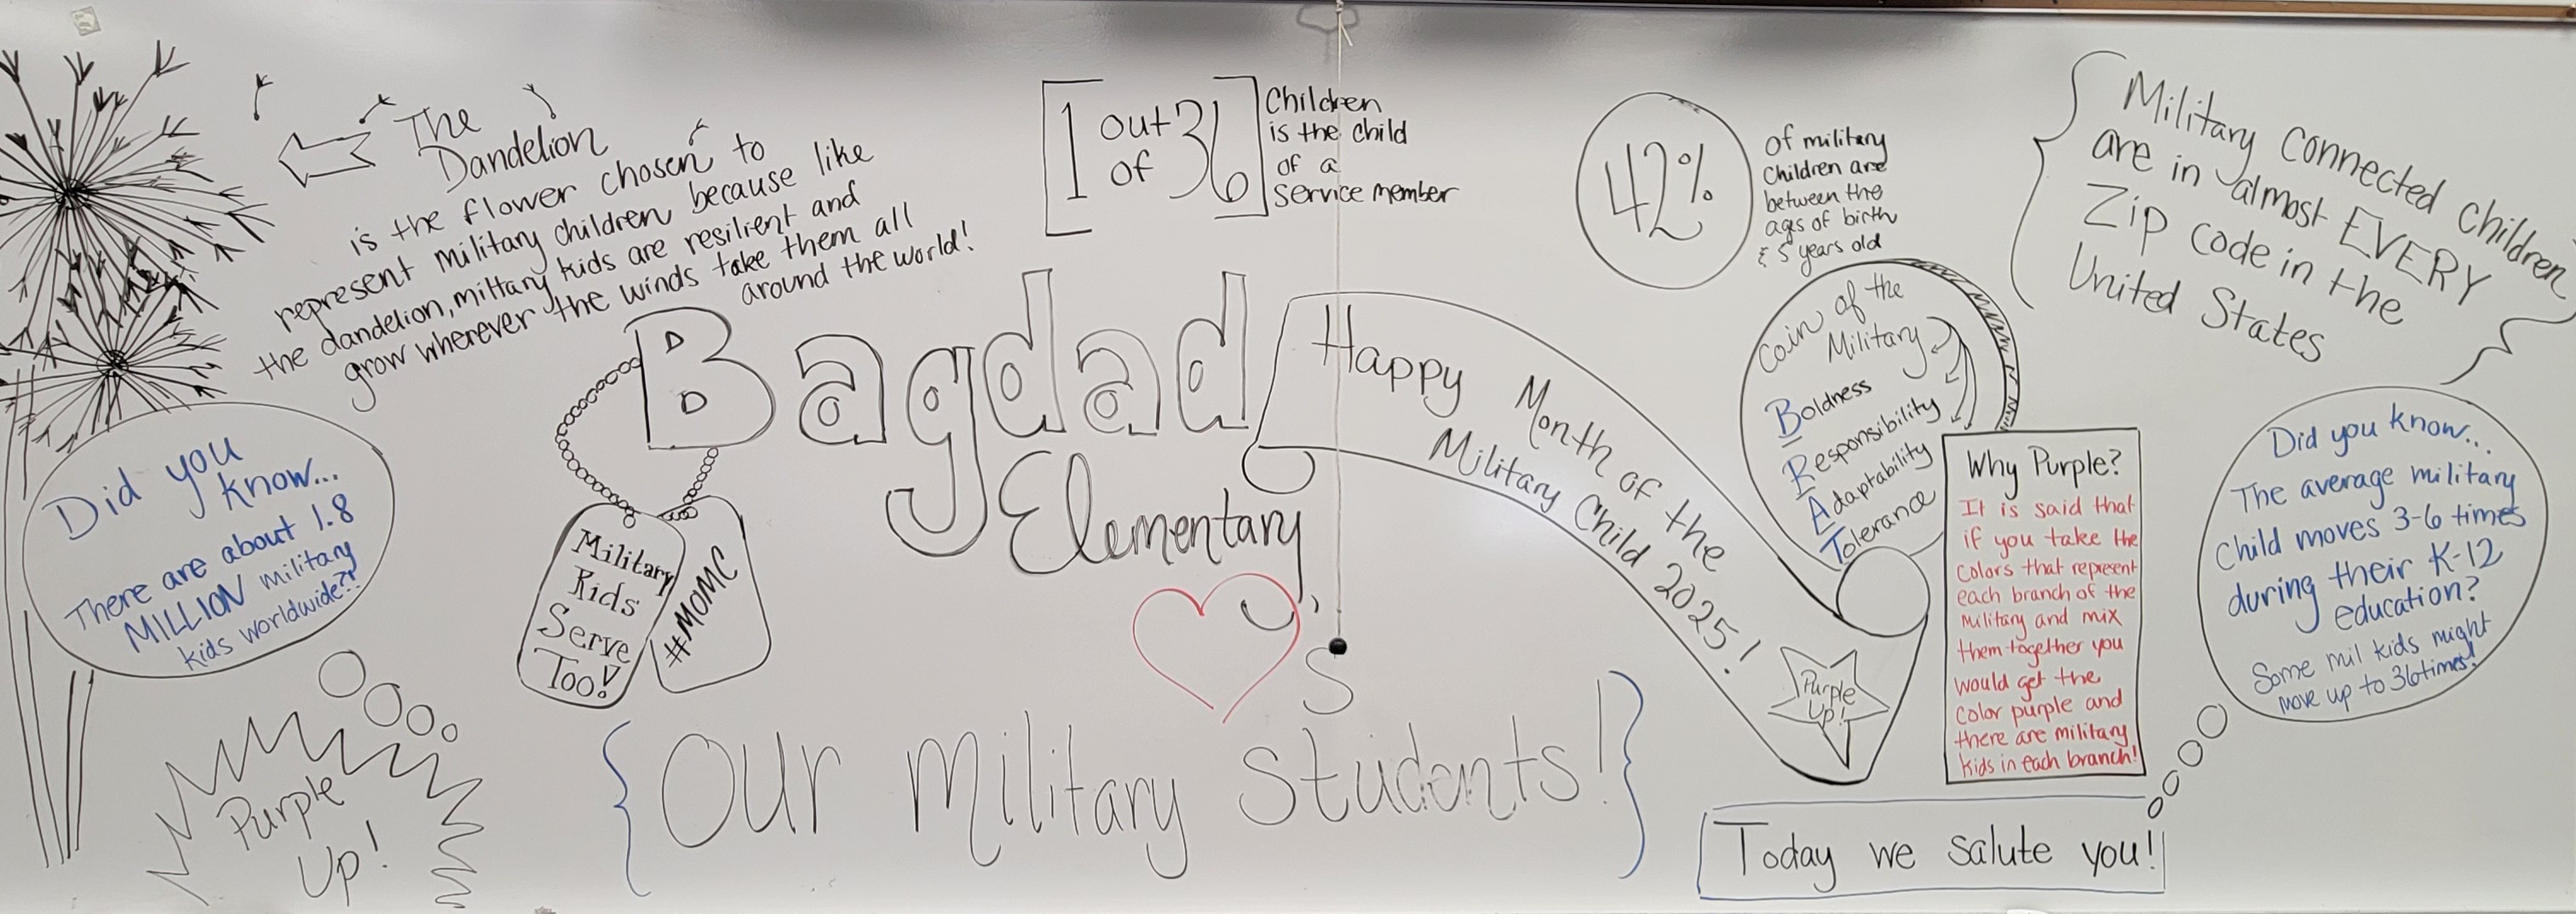 The
Dandelion
is the flower chosen to
represent military children because like
the dandelion, military kids are resilient and
grow wherever the winds take them all
around the world!
1 out of 36
Children
is the child
of a
Service member
42%
of military
Children are
between the
ages of birth
& 5 years old
Military connected children
are in almost EVERY
Zip code in the
United States
Bagdad
Elementary
Happy Month of the
Military Child 2025!
Purple
Up!
Coin of the
Military
Boldness
Responsibility
Adaptability
Tolerance
Why Purple?
It is said that
if you take the
colors that represent
each branch of the
military and mix
them together you
would get the
color purple and
there are military
kids in each branch!
Did you know...
The average military
child moves 3-6 times
during their K-12
education?
Some mil kids might
move up to 36 times!
Did you
know...
There are about 1.8
MILLION military
kids worldwide?!
Military
Kids
Serve
Too!
#MOMC
S
Purple
Up!
Our Military Students!
Today we salute you!